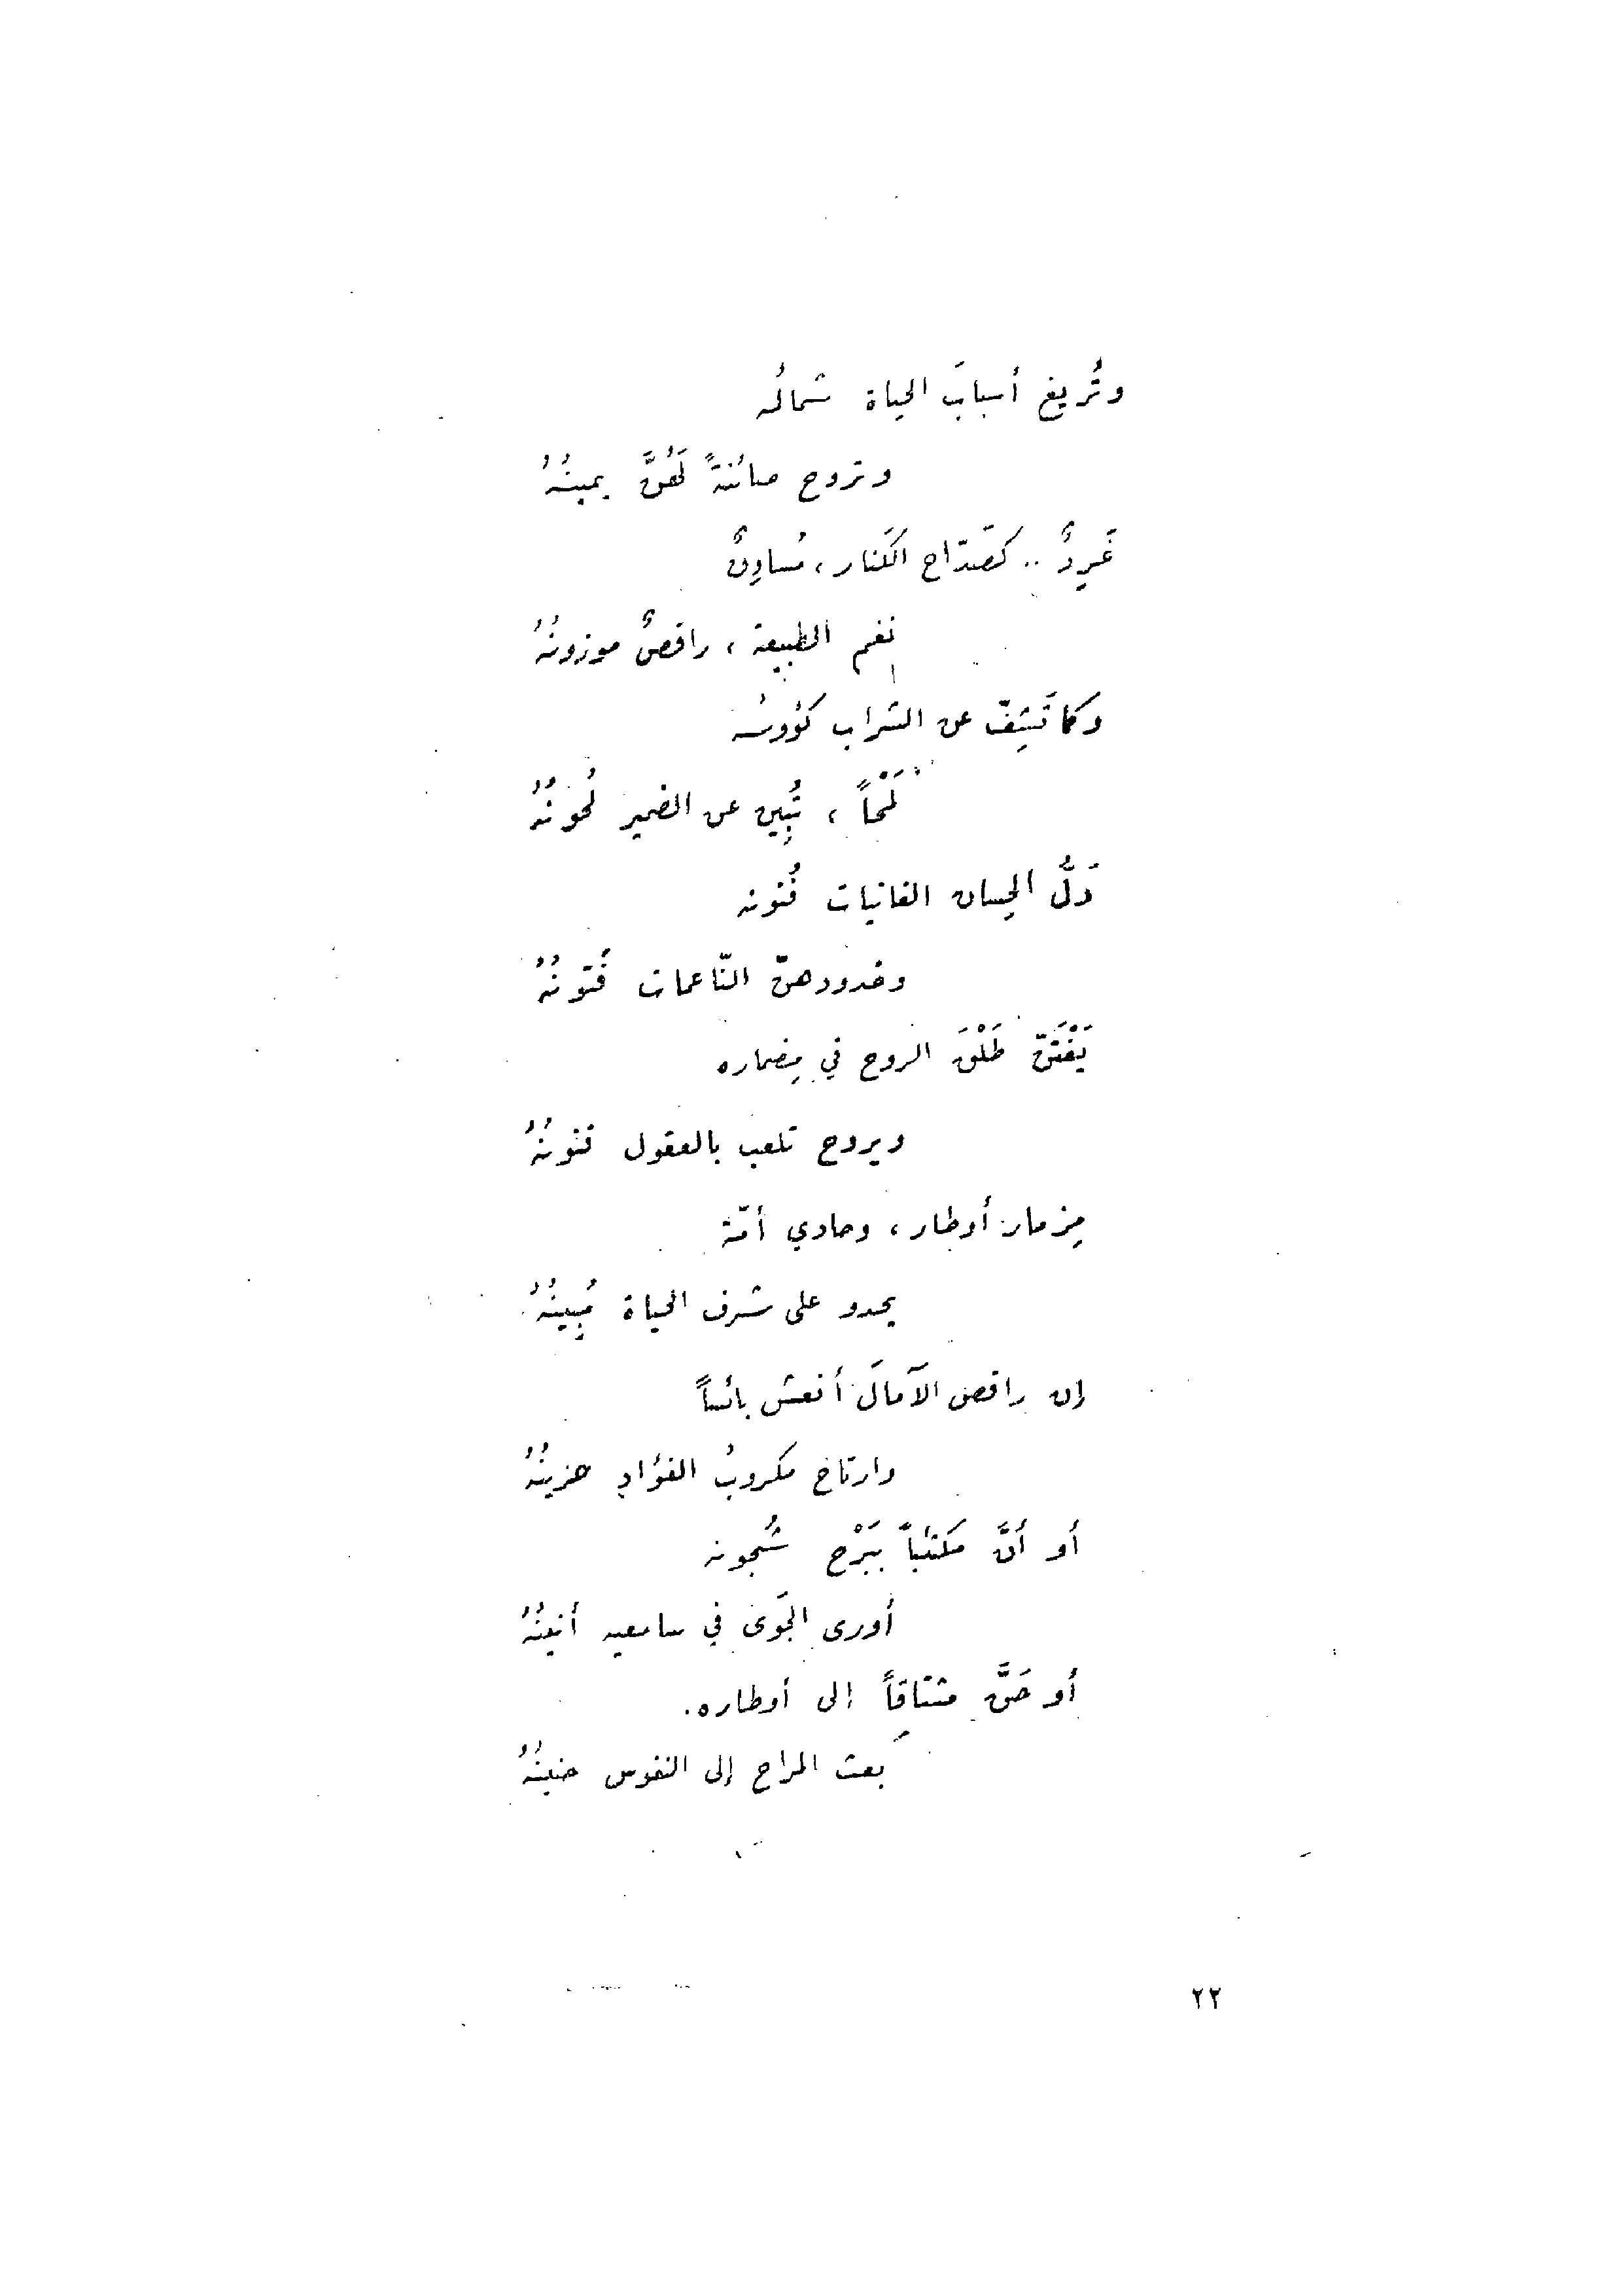 وتُريغ أسبابَ الحياة شمالُه
وتروح صائنةً لَهُنَّ يمينُهُ
غَرِدٌ .. كصَدّاح الكَنار، مُساوِقٌ
نغم الطبيعة، راقصٌ موزونُهُ
وكما تَشِفّ عن الشراب كؤوسُه
لَمْحاً، تُبِين عن الضمير لُحونُهُ
دَلُّ الحِسان الغانيات فُنونه
وخدودهنّ النّاعمات فُتونُهُ
يَفْتَنّ طَلْقَ الروح في مِضماره
ويروح تلعب بالعقول فنونُهُ
مِزمار أوطار، وحادي أمّة
يحدو على شرف الحياة مُبِينُهُ
إن راقص الآمالَ أنعش بائساً
وارتاح مكروبُ الفؤادِ حزينُهُ
أو أنَّ مكتئباً بِبَرْح شُجونه
أورى الجَوَى في سامعيه أنينُهُ
أو حَنَّ مشتاقاً إلى أوطاره.
بعث المراح إلى النفوس حنينُهُ
٢٢